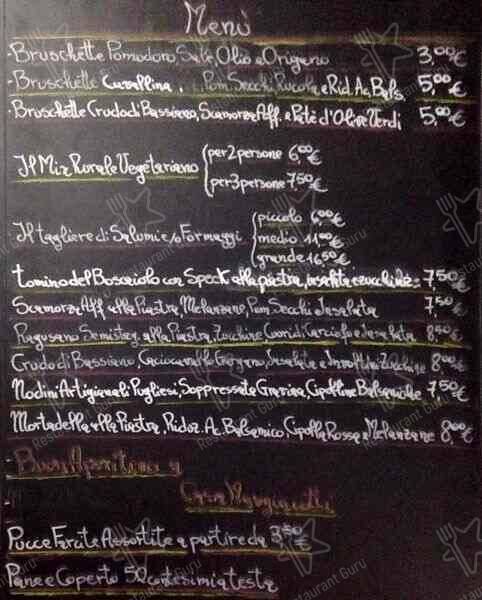 Menù
- Bruschette Pomodoro, Sale, Olio e Origano 3,00€
- Bruschette Cavallina, Pom. Secchi Rucola e Rid. Ac. Bals. 5,00€
- Bruschette Crudo di Bassiano, Scamorza Aff. e Patè d'Olive Verdi 5,00€
Il Mix Rurale Vegetariano
per 2 persone 6,00€
per 3 persone 7,50€
Il tagliere di Salumi e/o Formaggi
piccolo 6,00€
medio 11,00€
grande 16,50€
Tomino del Boscaiolo con Speck alla piastra, insalata e zucchine 7,50€
Scamorza Aff. alla Piastra, Melanzane, Pom. Secchi Insalata 7,50€
Ragusano Semistag. alla Piastra, Zucchine Cuori di Carciofo e Insalata 8,50€
Crudo di Bassiano, Caciocavallo Gargano, Insalata e Involtini Zucchine 8,00€
Nodini Artigianali Pugliesi, Soppressata Gravina, Cipolline Balsamiche 7,50€
Mortadella alla Piastra, Riduz. Ac. Balsamico, Cipolla Rossa e Melanzane 8,00€
- Buon Aperitivo a
Casa Mangiacotti
Pucce Farcite Assortite a partire da 3,50€
Pane e Coperto 50 centesimi a testa
Restaurant Guru